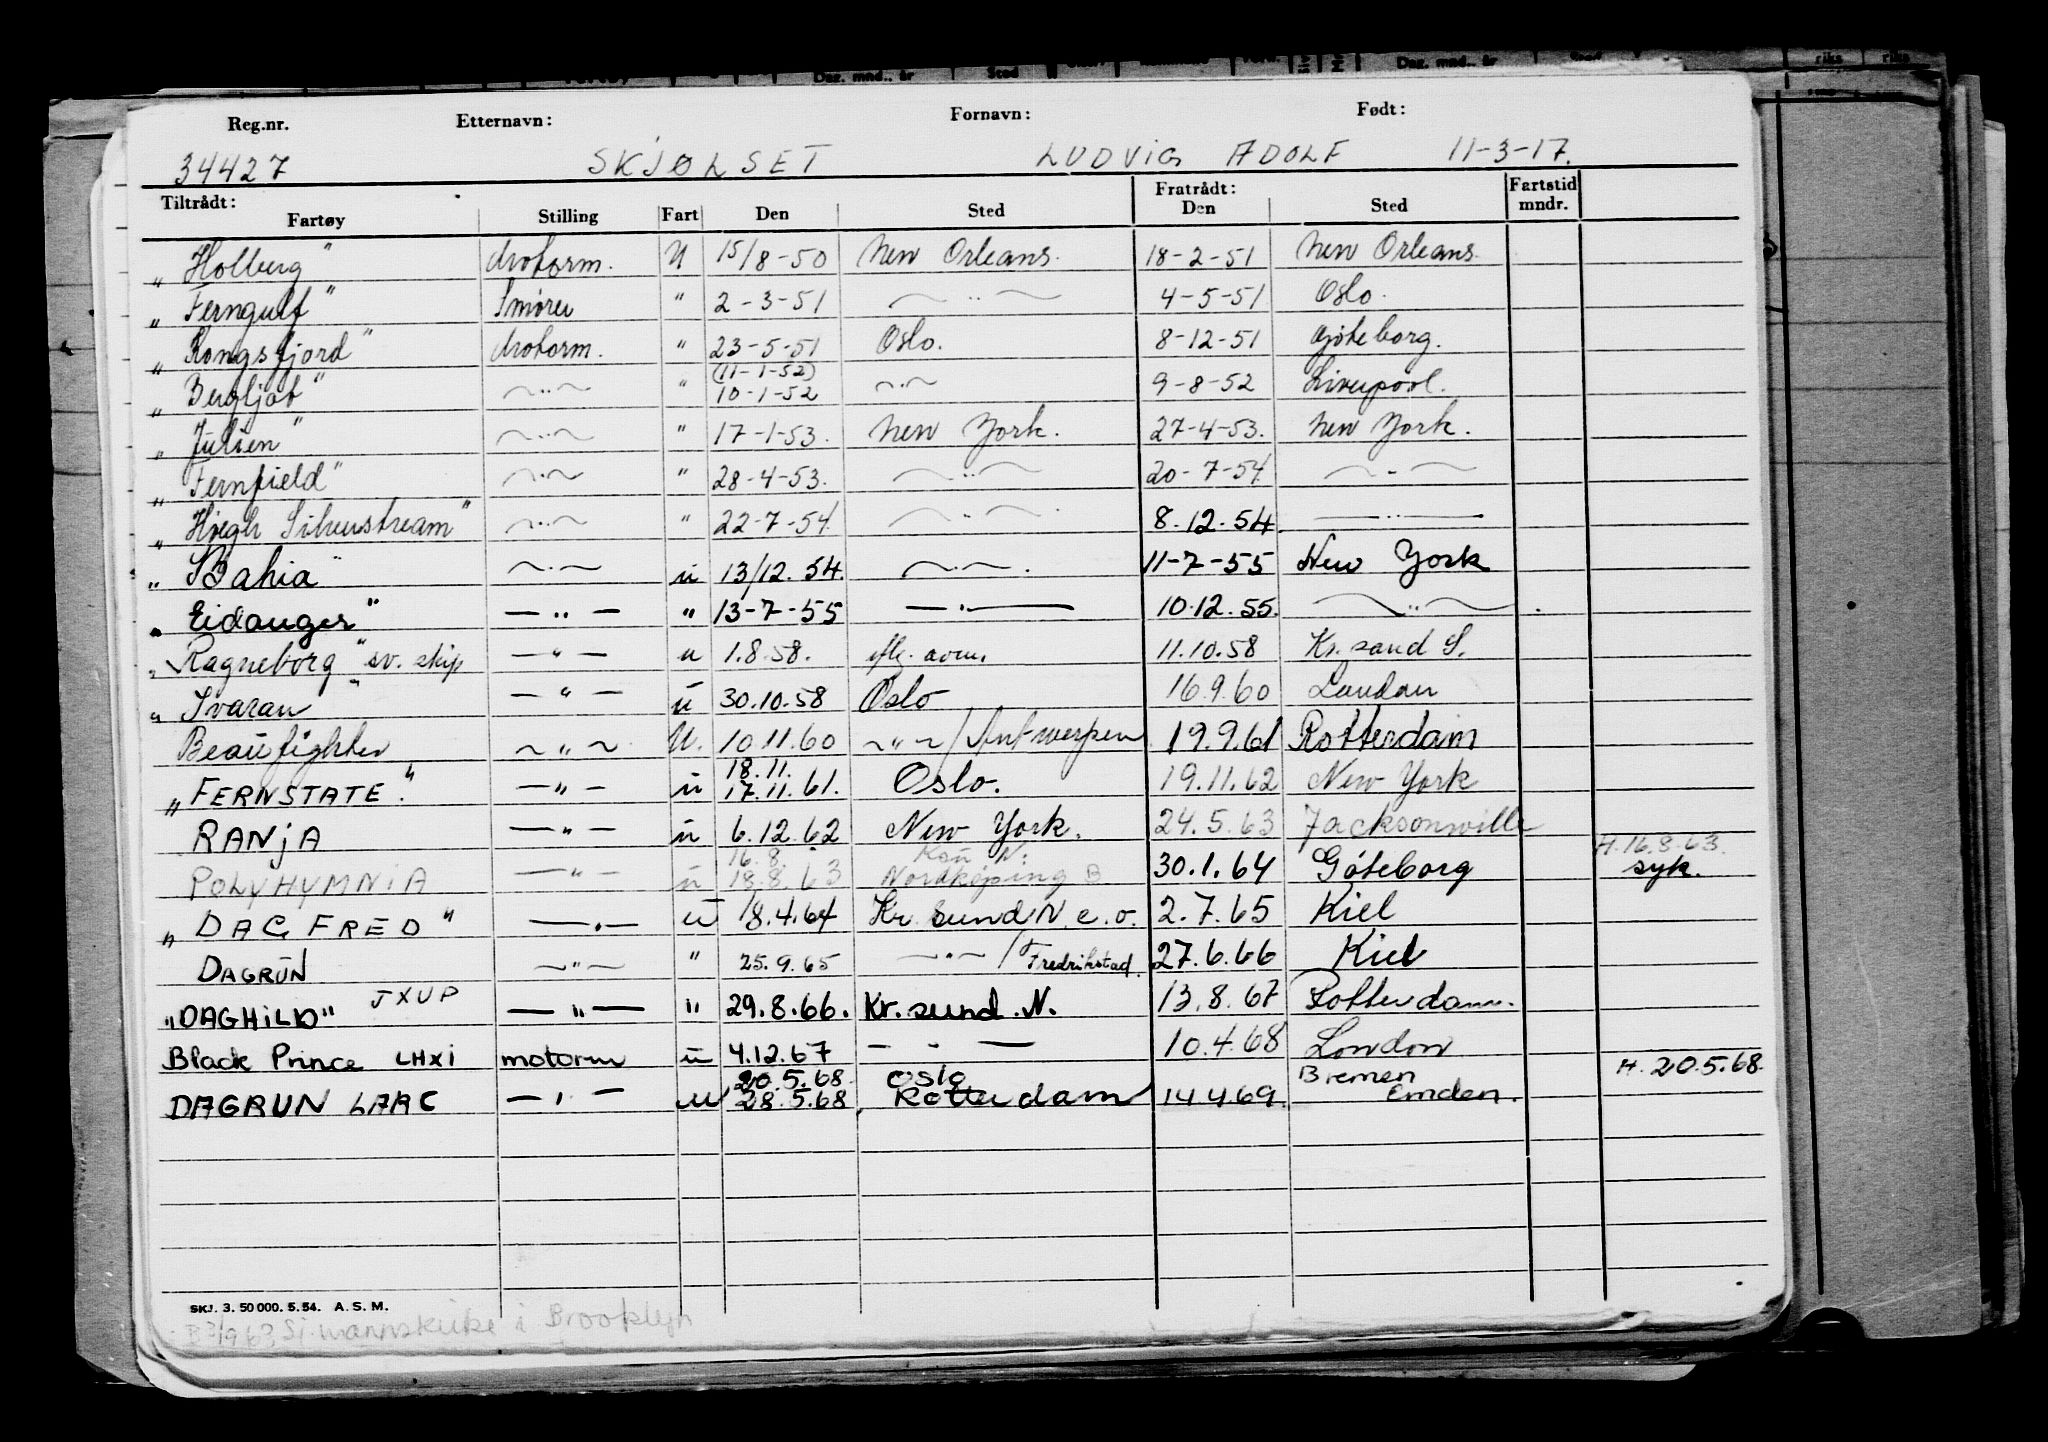 Reg.nr. Etternavn: Fornavn: Født:
34427 SKJØLSET LUDVIG ADOLF 11-3-17.
Tiltrådt: Fratrådt: Fartstid
Fartøy Stilling Fart Den Sted Den Sted mndr.
„ Holberg" Motorm. U 15/8-50 New Orleans. 18-2-51 New Orleans.
„ Ferngulf" Smører " 2-3-51 ~ „ ~ 4-5-51 Oslo.
„ Kongsfjord" Motorm. " 23-5-51 Oslo. 8-12-51 Gøteborg.
(11-1-52)
„ Bergljot" ~ „ ~ " 10-1-52 ~ „ ~ 9-8-52 Liverpool.
„ Julien" ~ „ ~ " 17-1-53. New York. 27-4-53. New York.
„ Fernfield" ~ „ ~ " 28-4-53. ~ „ ~ 20-7-54 ~ „ ~
„ Høegh Silverstream" ~ „ ~ " 22-7-54. ~ „ ~ 8.12.54. — „ —
„ Bahia" ~ „ ~ u 13/12.54. ~ „ ~. 11-7-55 New York
„ Eidanger" — „ — " 13-7-55 — „ — 10.12.55. ~ „ ~.
„ Ragneborg" sv. skip — „ — u 1.8.58. iflg. avm. 11.10.58 Kr.sand S.
„ Svaran" — „ — u 30.10.58 Oslo 16.9.60 London
Beaufighter ~ „ ~ U. 10.11.60 ~ „ ~ / Antwerpen 19.9.61 Rotterdam
18.11.
„ FERNSTATE". — „ — u 17.11.61. Oslo. 19.11.62 New York
RANJA — „ — u 6.12.62 New York. 24.5.63 Jacksonville
16.8. N: H.16.8.63.
POLYHYMNIA — „ — u 18.8.63 Nordkøping B 30.1.64 Göteborg syk.
„ DAGFRED" — „ — u 18.4.64 Kr.sund N. e.o. 2.7.65 Kiel
DAGRUN ~ „ ~ " 25.9.65 — „ — / Fredrikstad. 27.6.66 Kiel
„DAGHILD" JXUP — „ — " 29.8.66. Kr.sund.N. 13.8.67 Rotterdam.
Black Prince LHXI motorm u 4.12.67 — „ — 10.4.68 London
20.5.68. Oslo Bremen H. 20.5.68.
DAGRUN LAAC — „ — u 28.5.68. Rotterdam 14.4.69. Emden.
SKJ. 3. 50 000. 5. 54. A. S. M.
B 3/9.63 Sjømannskirke i Brooklyn